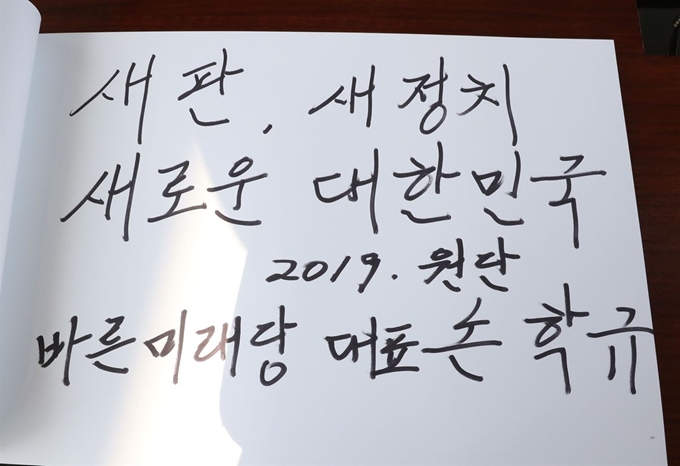 새판, 새정치
새로운 대한민국
2019. 원단
바른미래당 대표 손학규